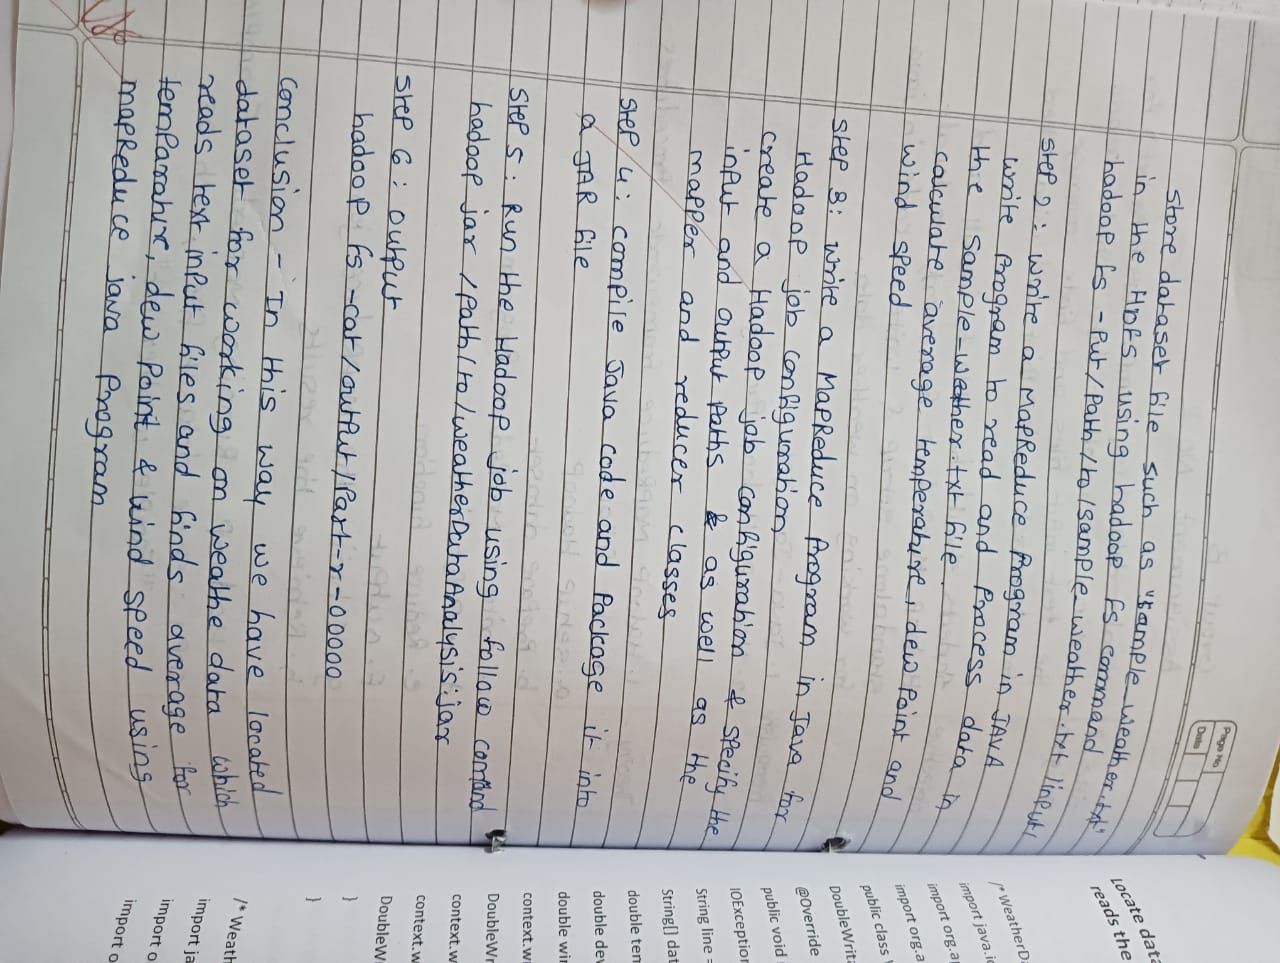 Page No
Date
Store dataset file such as "sample_weather.txt"
in the HDFS using hadoop fs command
hadoop fs - Put /Path /to /sample_weather.txt /input/
Step 2 : write a MapReduce Program in JAVA
write Program to read and Process data in
the sample_weather.txt file.
calculate average temperature, dew Point and
wind speed
Step 3: write a MapReduce Program in Java for
Hadoop job configuration
create a Hadoop job configuration & specify the
input and output Paths & as well as the
mapper and reducer classes
Step 4: compile Java code and Package it into
a JAR file
Step 5: Run the Hadoop job using follow command
hadoop jar /path/to/weatherDataAnalysis.jar
Step 6 : output
hadoop fs -cat /output/Part-r-00000
Conclusion - In this way we have located
dataset for working on weathe data which
reads text input files and finds average for
temparature, dew Point & wind speed using
mapReduce java Program
Locate data
reads the
/* WeatherDa
import java.io
import org.a
import org.a
public class
DoubleWrita
@Override
public void
IOException
String line =
String[] dat
double tem
double dew
double win
context.w
DoubleWr
context.w
context.w
DoubleW
}
}
/* Weath
import ja
import o
import o